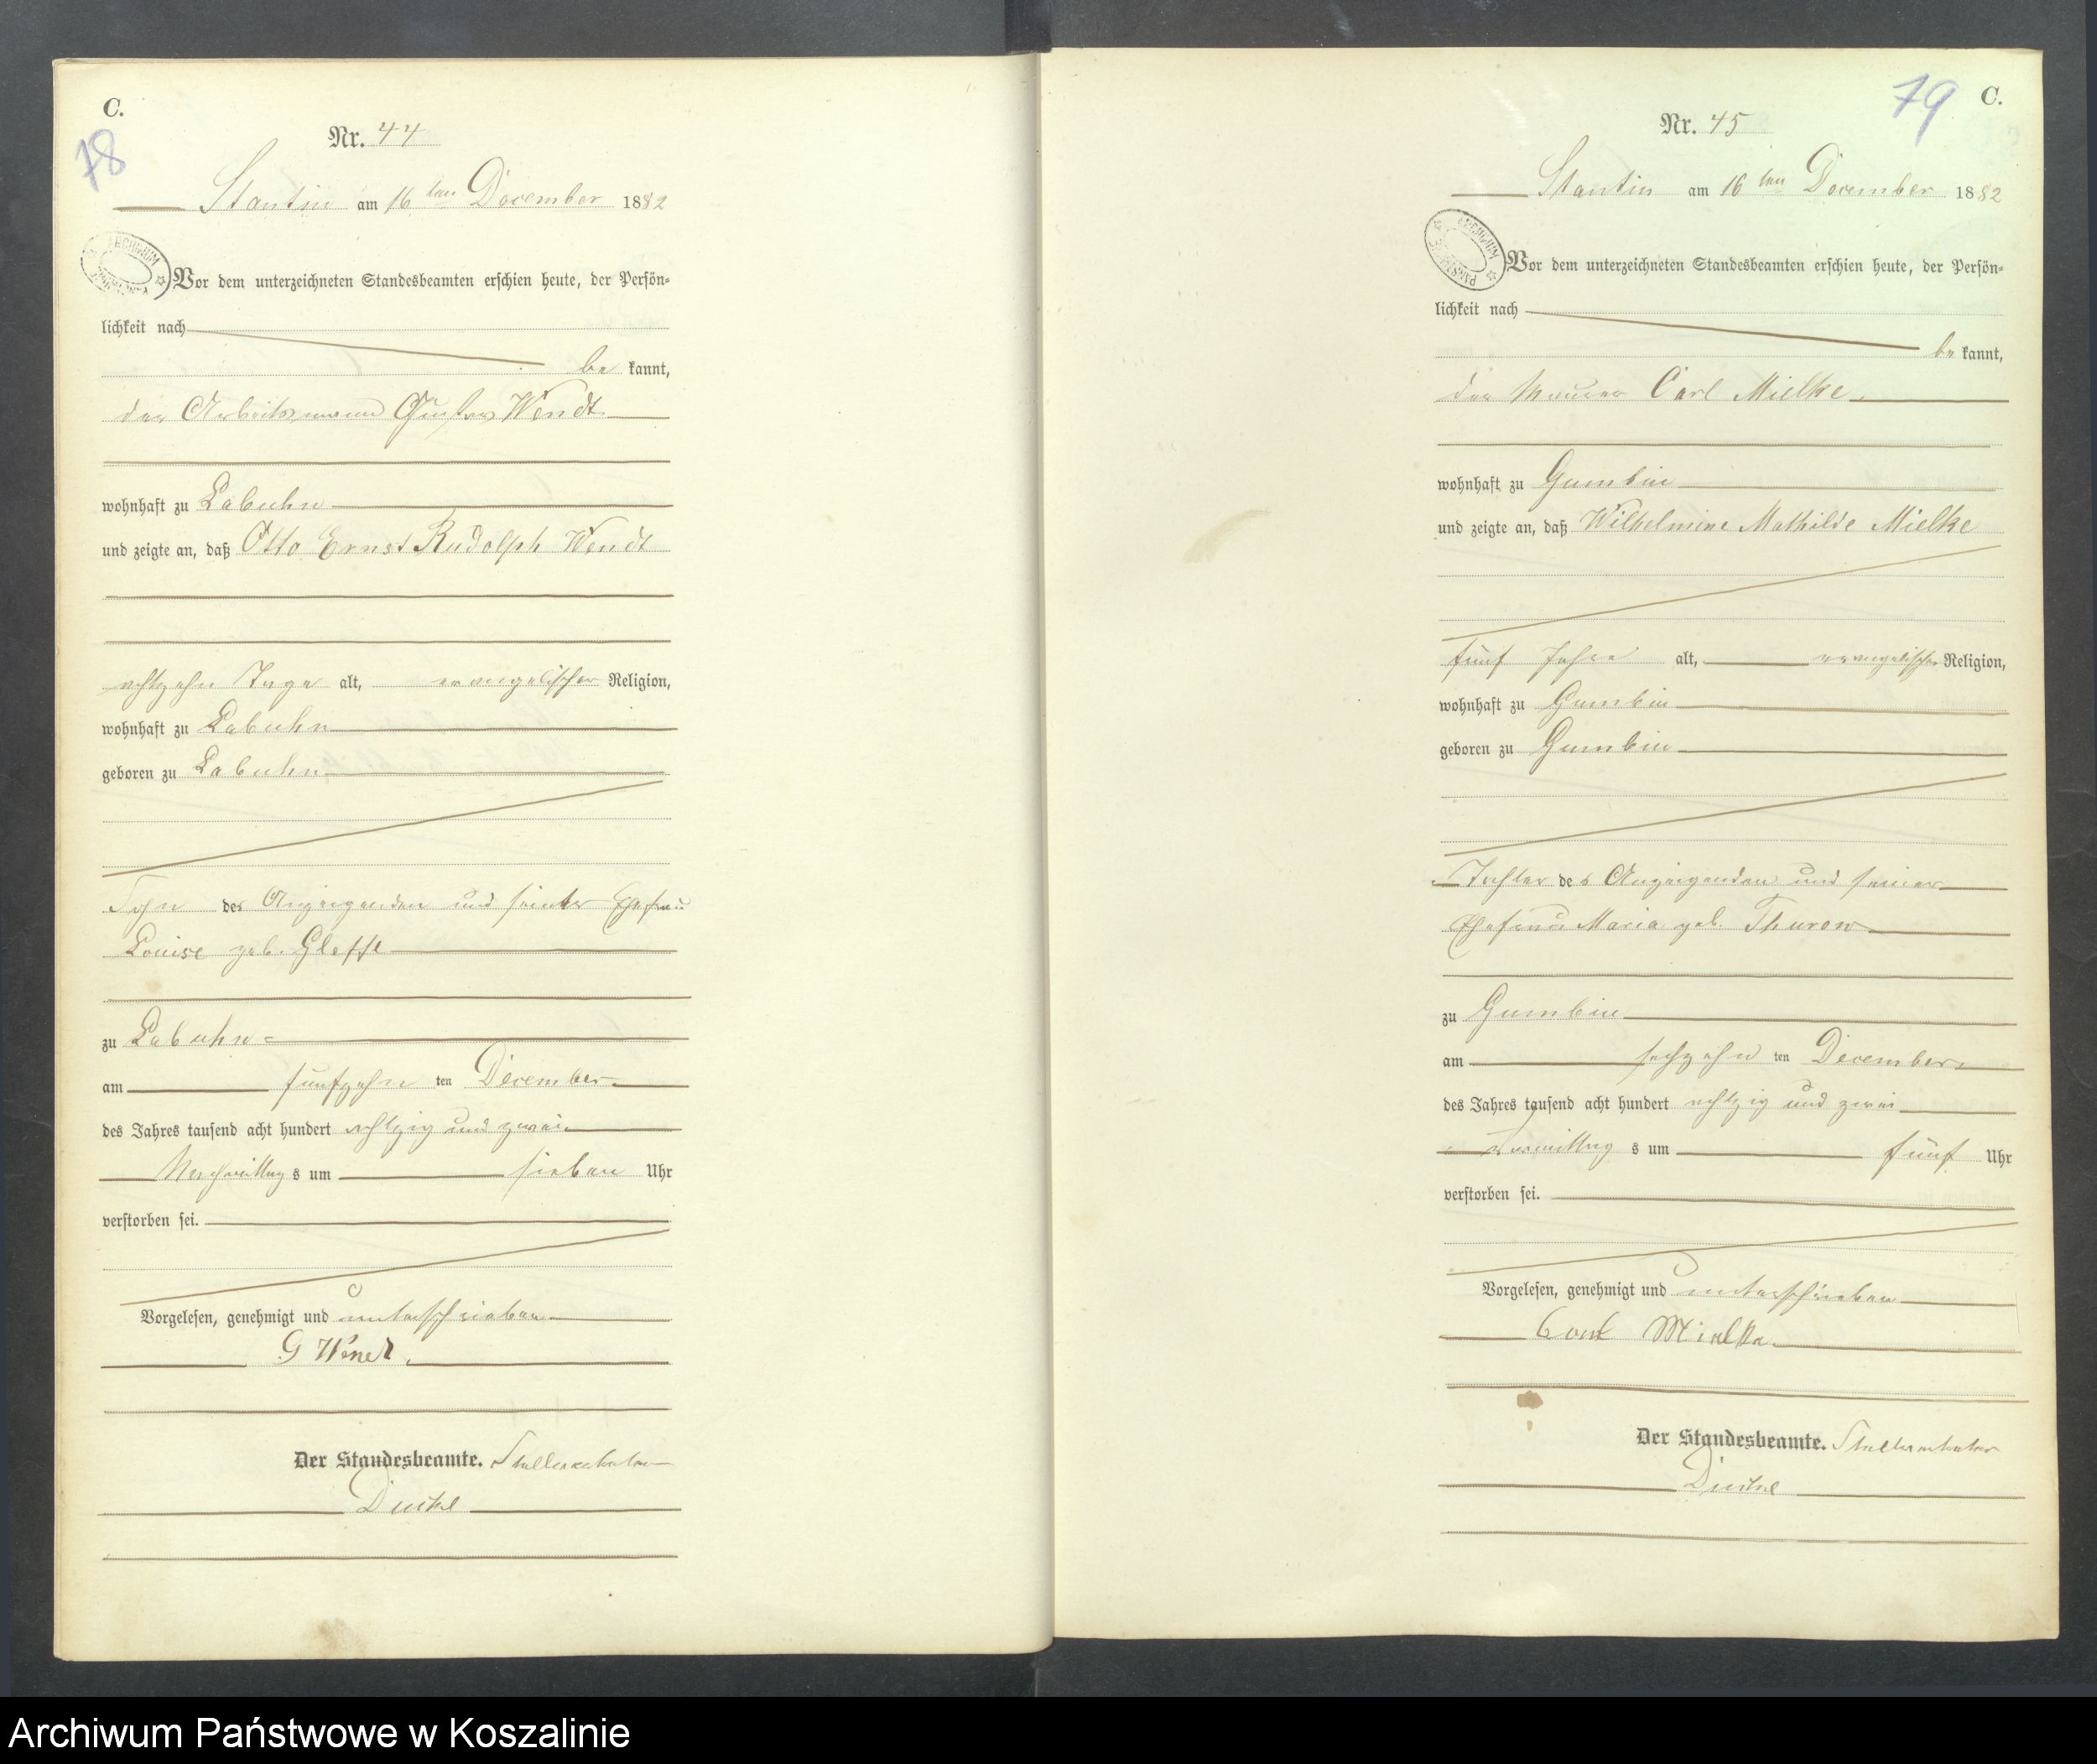 C.
78
Nr. 44
Stantin am 16ten December 1882
ARCHIWUM
Vor dem unterzeichneten Standesbeamten erschien heute, der Persön-
lichkeit nach
be kannt,
der Arbeitsmann Gustav Wendt
wohnhaft zu Labuhn
und zeigte an, daß Otto Ernst Rudolph Wendt
achtzehn Tage alt, evangelischer Religion,
wohnhaft zu Labuhn
geboren zu Labuhn
Sohn des Anzeigenden und seiner Ehefrau
Louise geb.
zu Labuhn
am fünfzehn ten December
des Jahres tausend acht hundert achtzig und zwei
Nachmittag s um sieben Uhr
verstorben sei.
Vorgelesen, genehmigt und unterschrieben
G Wendt
Der Standesbeamte. Stellvertreter
79
C.
Nr. 45
Stantin am 16ten December 1882
ARCHIWUM
Vor dem unterzeichneten Standesbeamten erschien heute, der Persön-
lichkeit nach
be kannt,
der Maurer Carl Mielke
wohnhaft zu Gumbin
und zeigte an, daß Wilhelmine Mathilde Mielke
fünf Jahre alt, evangelischer Religion,
wohnhaft zu Gumbin
geboren zu Gumbin
Tochter des Anzeigenden und seiner
Ehefrau Maria geb. Thurow
zu Gumbin
am sechzehn ten December
des Jahres tausend acht hundert achtzig und zwei
Vormittag s um fünf Uhr
verstorben sei.
Vorgelesen, genehmigt und unterschrieben
Carl Mielke
Der Standesbeamte. Stellvertreter
Archiwum Państwowe w Koszalinie